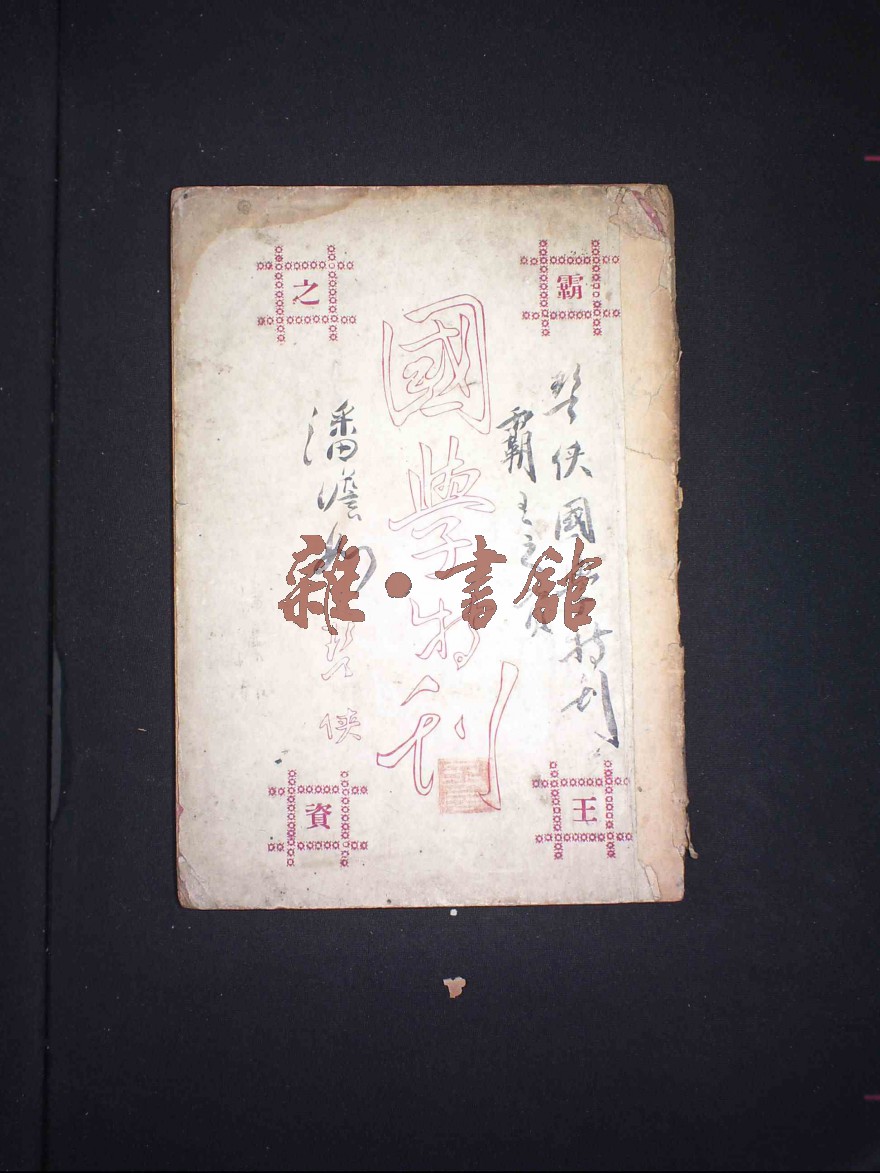 霸王之資
笠俠國學特刊
霸王之資
國學特刊
潘澹如
笠俠
雜·書館